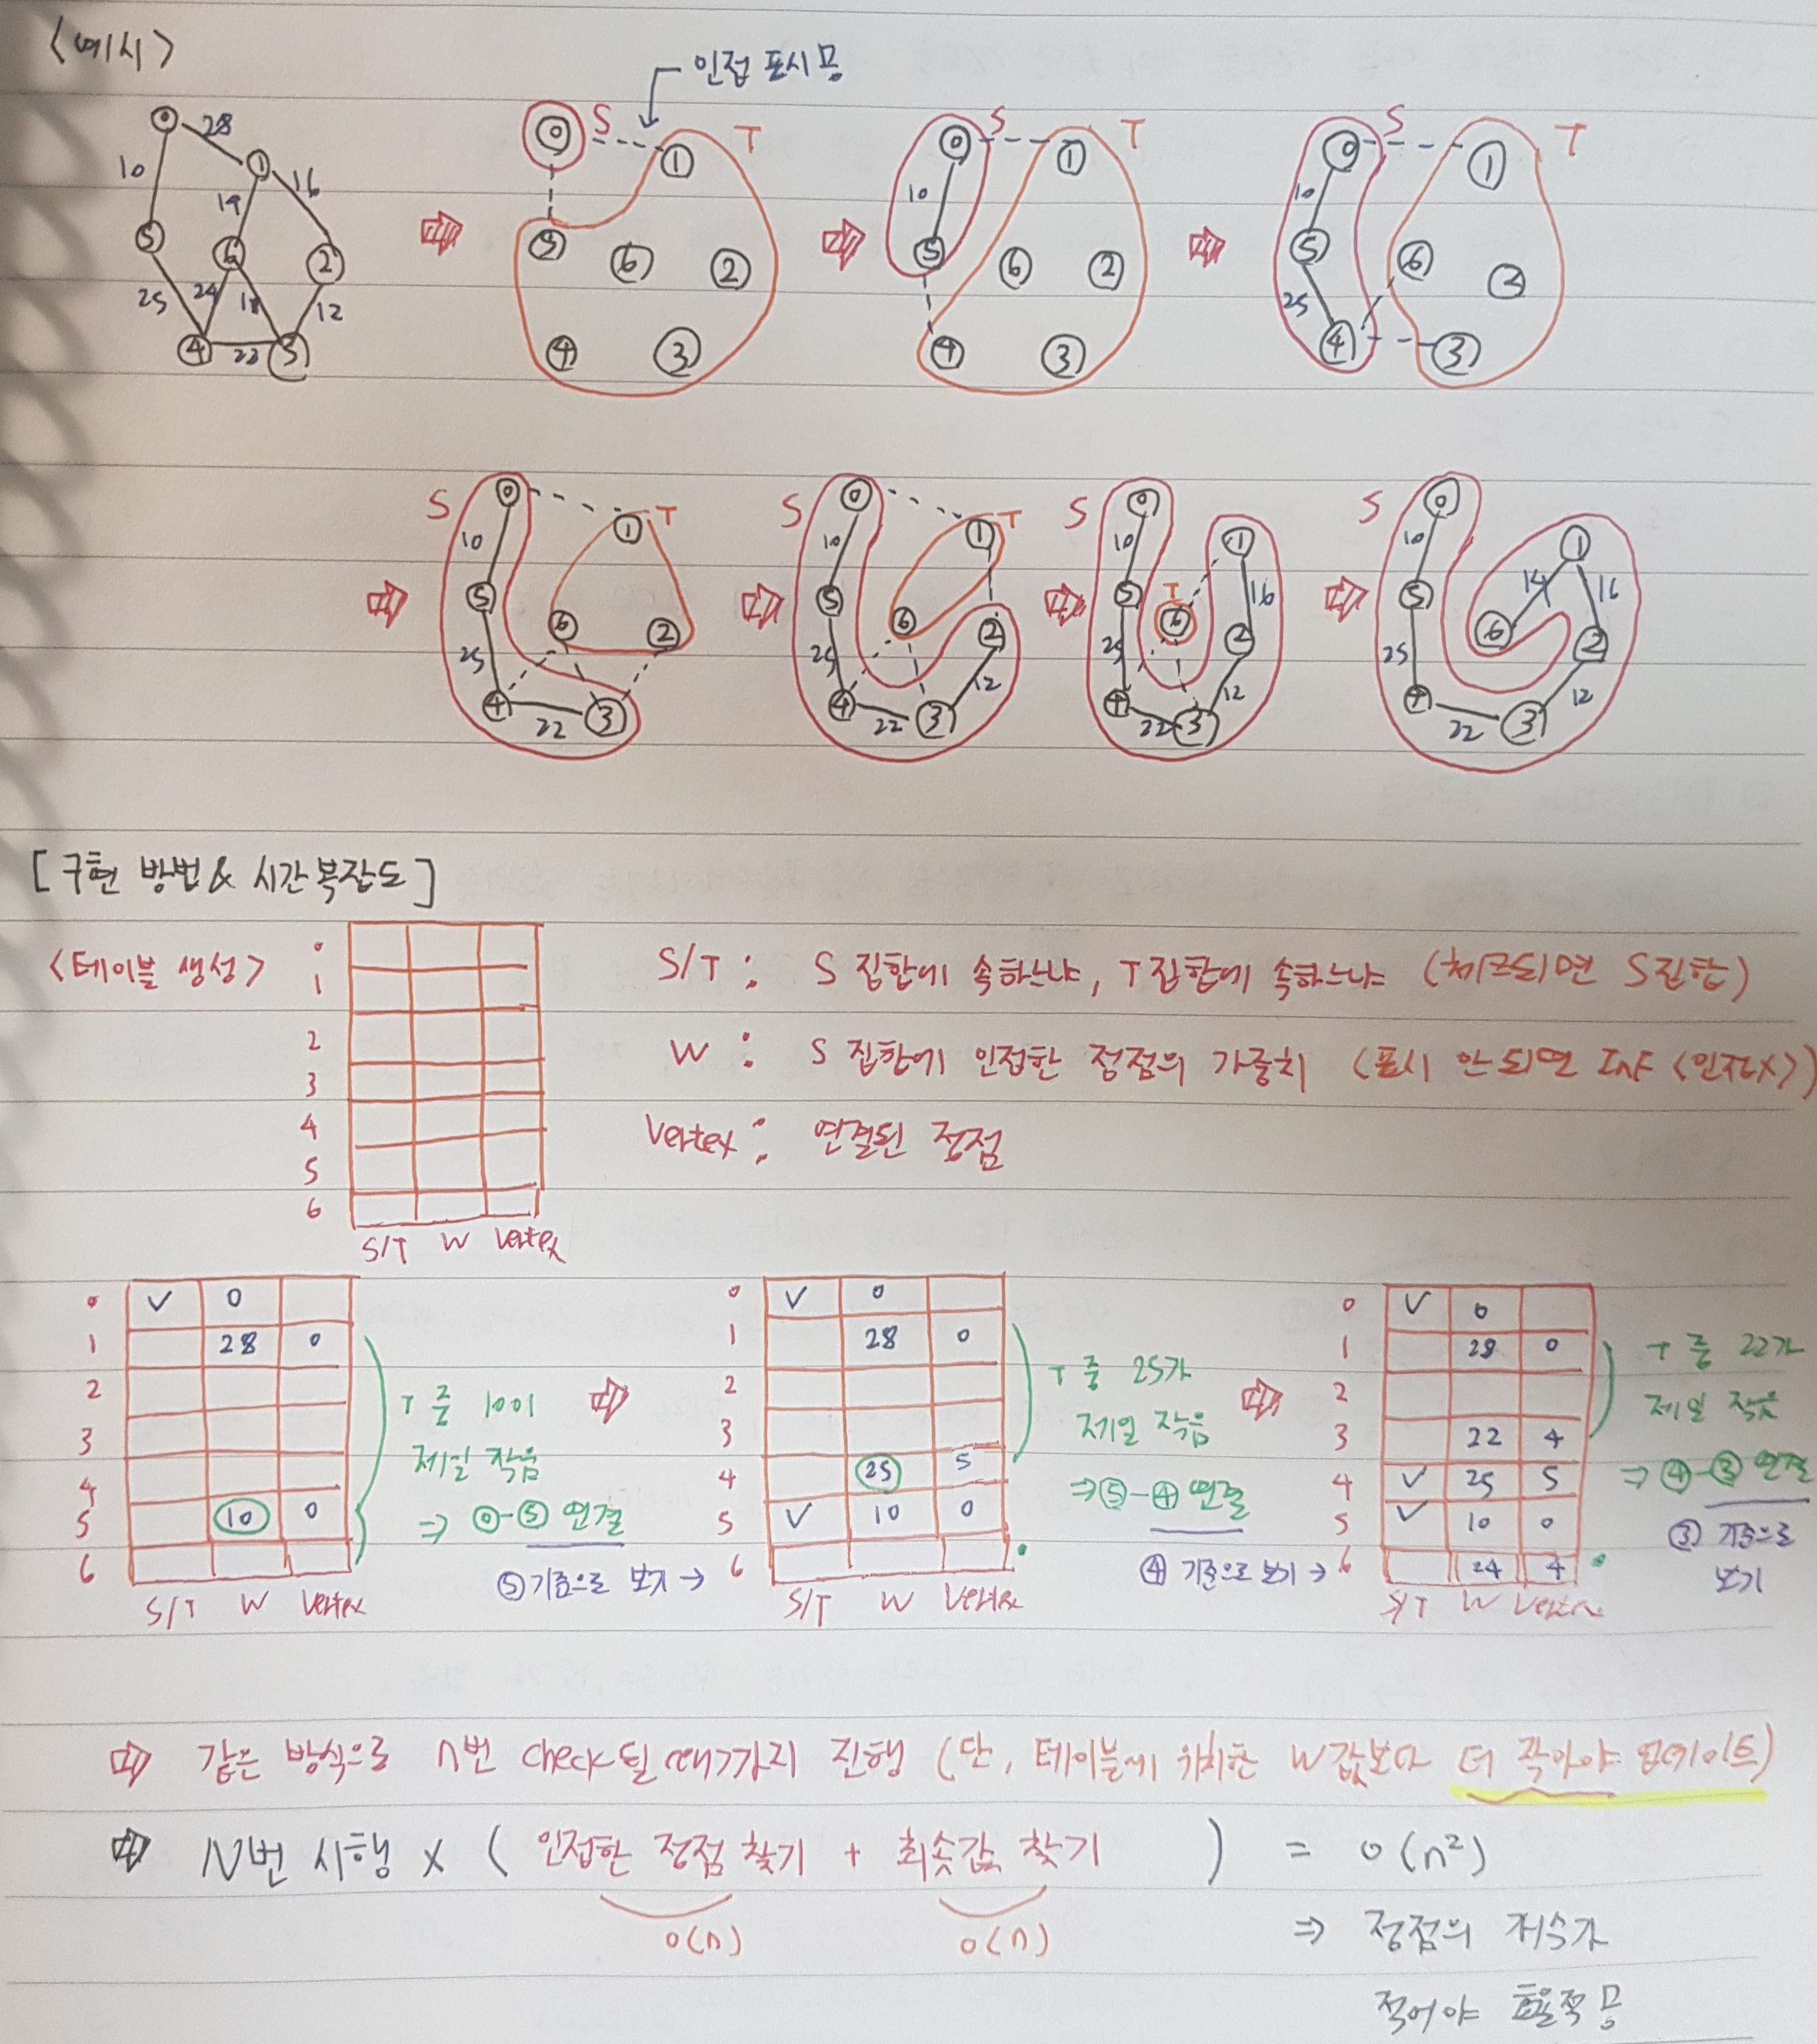 <예시>
인접 표시 용
0 28 1 10 19 16 5 6 2 25 24 18 12 4 22 3
0 S 1 T 5 6 2 4 3
0 S 1 T 10 5 6 2 4 3
0 S 1 T 10 5 6 2 25 4 3
S 0 1 T 10 5 6 2 25 4 22 3
S 0 1 T 10 5 6 2 25 4 22 3 12
S 0 1 10 5 T 6 16 2 25 4 22 3 12
S 0 1 10 5 14 16 6 2 25 4 22 3 12
[구현 방법 & 시간복잡도]
<테이블 생성>
0
1
2
3
4
5
6
S/T W Vertex
S/T : S 집합에 속하느냐, T 집합에 속하느냐 (체크되면 S집합)
W : S 집합에 인접한 정점의 가중치 (표시 안 되면 INF <인접X>)
Vertex : 연결된 정점
0 ✓ 0
1 28 0
2
3
4
5 10 0
6
S/T W Vertex
T 중 10이
제일 작음
⇒ ⓪-⑤ 연결
⑤ 기준으로 보기 →
0 ✓ 0
1 28 0
2
3
4 25 5
5 ✓ 10 0
6
S/T W Vertex
T 중 25가
제일 작음
⇒ ⑤-④ 연결
④ 기준으로 보기 →
0 ✓ 0
1 28 0
2
3 22 4
4 ✓ 25 5
5 ✓ 10 0
6 24 4
S/T W Vertex
T 중 22가
제일 작음
⇒ ④-③ 연결
③ 기준으로
보기
⇒ 같은 방식으로 n번 check될 때까지 진행 (단, 테이블에 위치한 W값보다 더 작아야 업데이트)
⇒ N번 시행 × ( 인접한 정점 찾기 + 최솟값 찾기 ) = O(n²)
O(n) O(n)
⇒ 정점의 개수가
적어야 효율적용